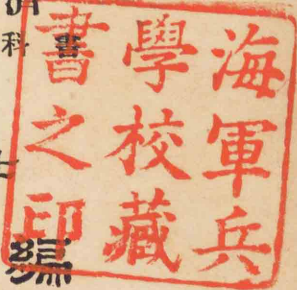 海軍兵
學校藏
書之印
科
書
編